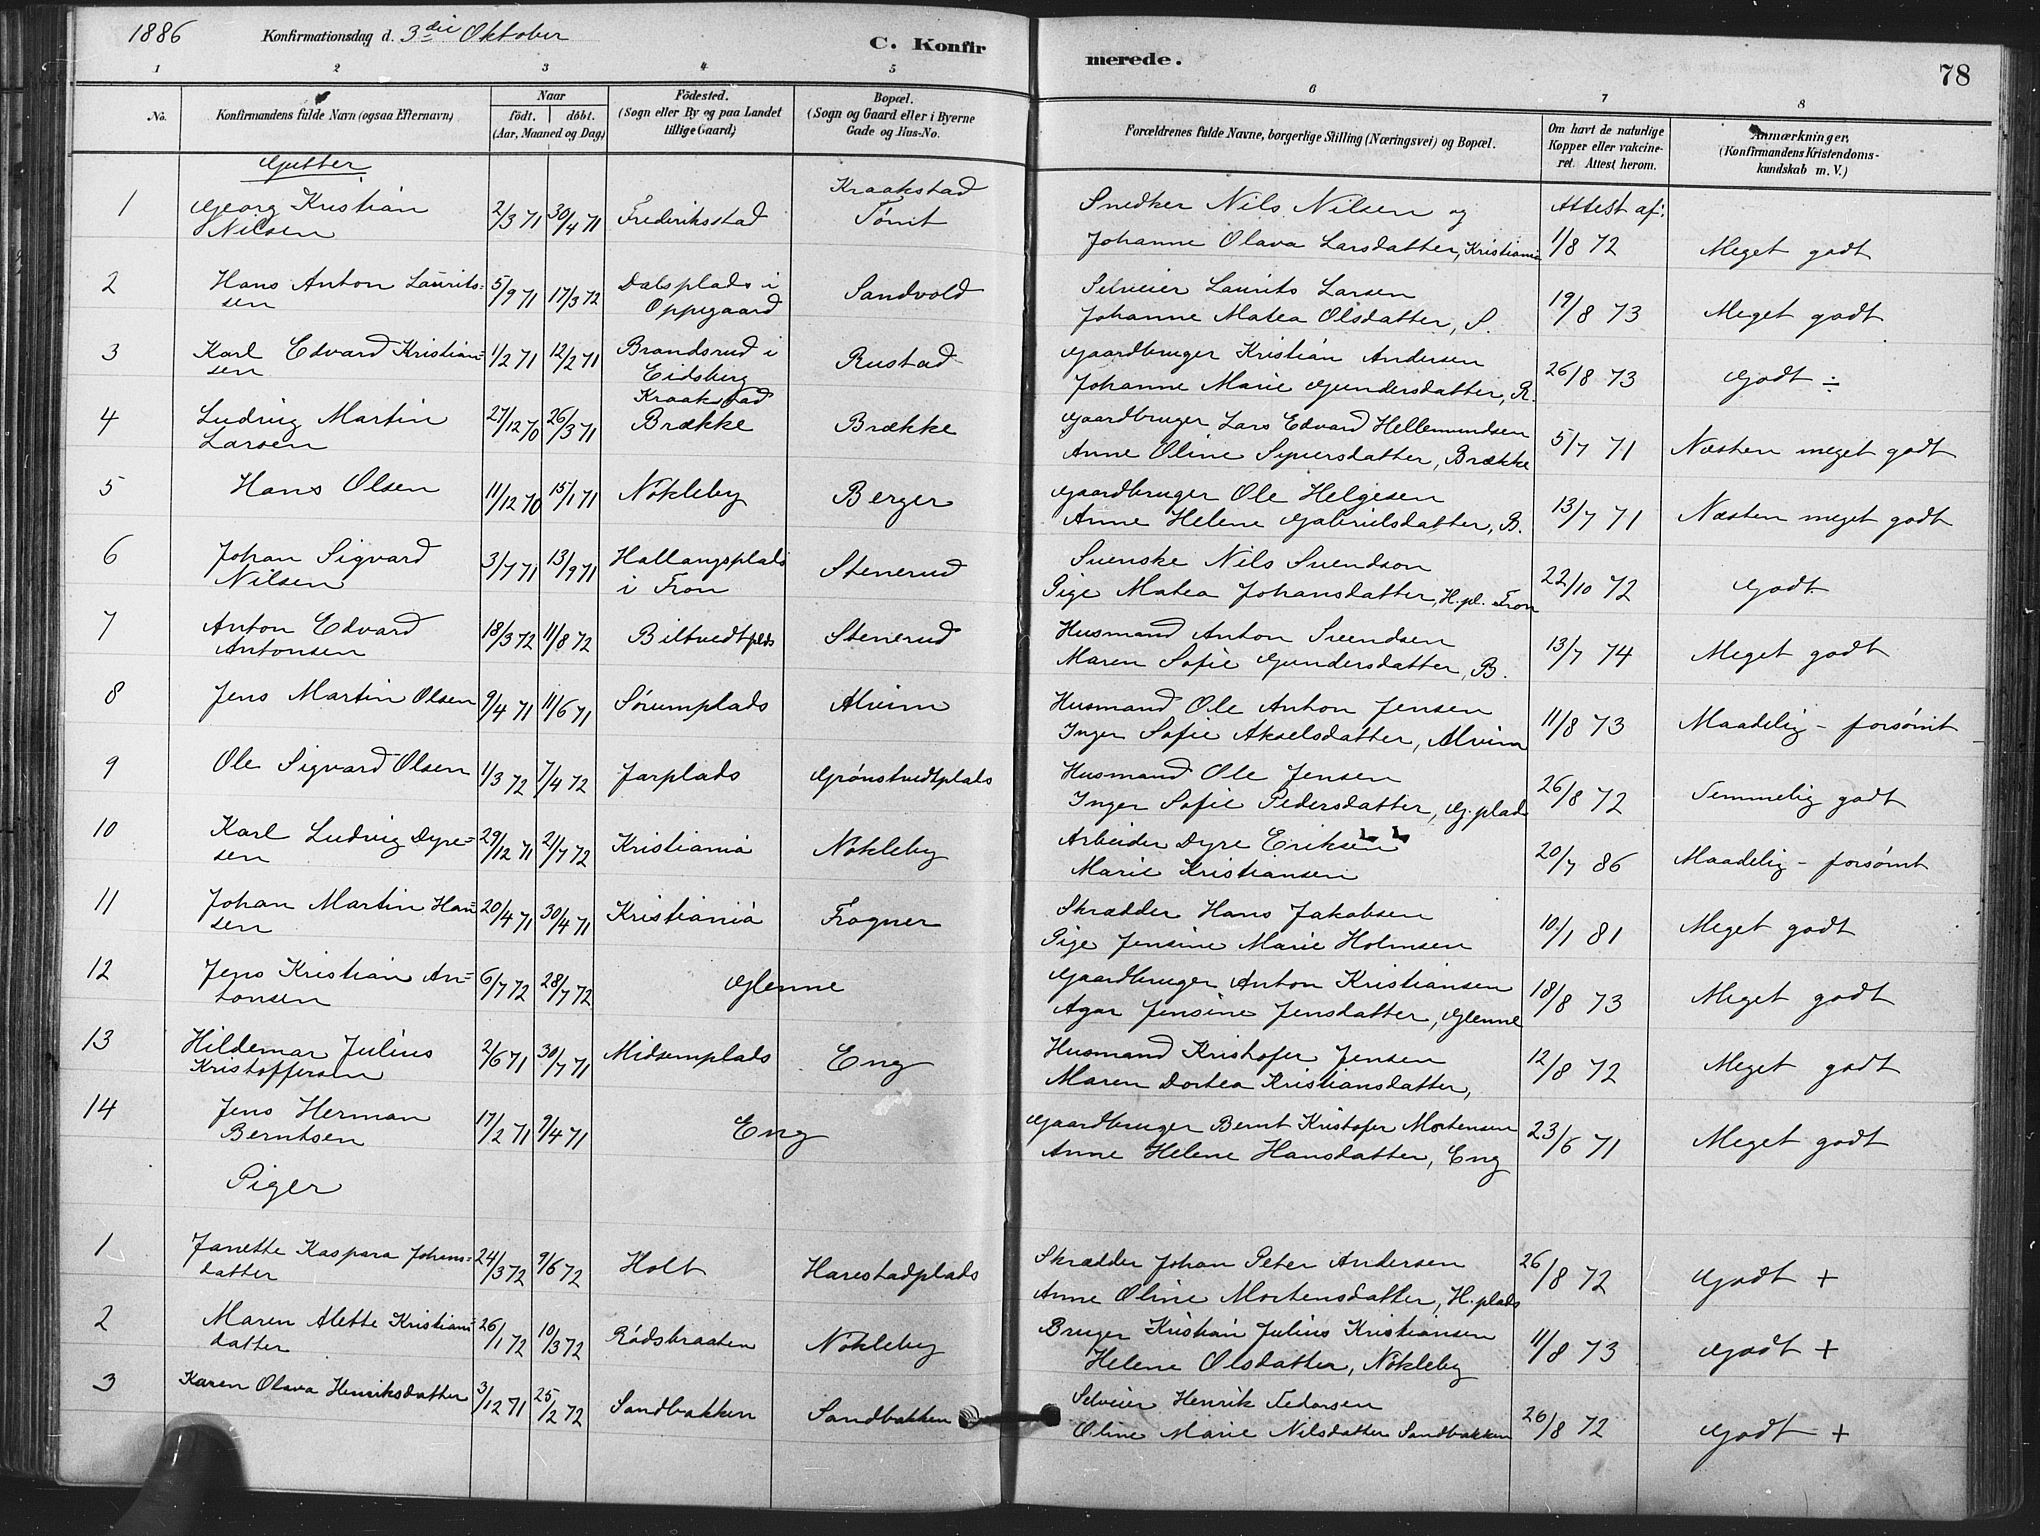 1886 Konfirmationsdag d. 3die Oktober
C. Konfir
merede.
78
1 2 3 4 5 6 7 8
No.
Konfirmandens fulde Navn (ogsaa Efternavn)
Naar
födt. döbt.
(Aar, Maaned og Dag)
Födested.
(Sogn eller By og paa Landet
tillige Gaard)
Bopæl.
(Sogn og Gaard eller i Byerne
Gade og Hus-No.
Forældrenes fulde Navne, borgerlige Stilling (Næringsvei) og Bopæl.
Om havt de naturlige
Kopper eller vakcine-
ret. Attest herom.
Anmærkninger,
(Konfirmandens Kristendoms-
kundskab m. V.)
Gutter
1 Georg Kristian
Nilsen
2/3 71 30/4 71 Frederiksstad
Kraakstad
Tømt
Snedker Nils Nilsen og
Johanne Olava Larsdatter, Kristiania
Attest af:
1/8 72 Meget godt
2 Hans Anton Laurits-
sen
5/9 71 17/3 72
Dalsplads i
Oppegaard
Sandvold
Selveier Laurits Larsen
Johanne Matea Olsdatter, S.
19/8 73 Meget godt
3 Karl Edvard Kristian-
sen
1/2 71 12/2 71
Brandsrud i
Eidsberg
Rustad
Gaardbruger Kristian Andersen
Johanne Marie Gundersdatter, R.
26/8 73 Godt ÷
4 Ludvig Martin
Larsen
27/12 70 26/3 71
Kraakstad
Brække
Brække
Gaardbruger Lars Edvard Hellemundsen
Anne Oline Syversdatter, Brække
5/7 71 Næsten meget godt
5 Hans Olsen
11/12 70 15/1 71 Nøkleby Berger
Gaardbruger Ole Helgesen
Anne Helene Gabrielsdatter, B.
13/7 71 Næsten meget godt
6 Johan Sigvard
Nilsen
3/7 71 13/9 71
Hallangsplads
i Fron
Stenerud
Svenske Nils Svendson
Pige Matea Johansdatter, H.pl. Fron
22/10 72 Godt
7 Anton Edvard
Antonsen
18/3 72 11/8 72 Biltvedtplds Stenerud
Husmand Anton Svendsen
Maren Sofie Gundersdatter, B.
13/7 74 Meget godt
8 Jens Martin Olsen
9/4 71 11/6 71 Sørumplads Alvim
Husmand Ole Anton Jensen
Inger Sofie Akselsdatter, Alvim
11/8 73 Maadelig - forsømt
9 Ole Sigvard Olsen
1/3 72 7/4 72 Jarplads Grønstvedtplads
Husmand Ole Jensen
Inger Sofie Pedersdatter, G.plads
26/8 72 Temmelig godt
10 Karl Ludvig Dyre-
sen
29/12 71 2/7 72 Kristiania Nøkleby
Arbeider Dyre Eriksen
Marie Kristiansen
20/7 86 Maadelig - forsømt
11 Johan Martin Han-
sen
20/4 71 30/4 71 Kristiania Frogner
Skrædder Hans Jakobsen
Pige Jensine Marie Holmsen
10/1 81 Meget godt
12 Jens Kristian An-
tonsen
6/7 72 28/7 72 Glenne
Gaardbruger Anton Kristiansen
Agar Jensine Jensdatter, Glenne
18/8 73 Meget godt
13 Hildemar Julius
Kristoffersen
2/6 71 30/7 71 Midsemplads Eng
Husmand Kristofer Jensen
Maren Dortea Kristiansdatter,
12/8 72 Meget godt
14 Jens Herman
Berntsen
17/2 71 9/4 71 Eng
Gaardbruger Bernt Kristofer Mortensen
Anne Helene Hansdatter, Eng
23/6 71 Meget godt
Piger
1 Janette Kaspara Johans-
datter
24/3 72 9/6 72 Holt Harestadplads
Skrædder Johan Peter Andersen
Anne Oline Mortensdatter, H.plads
26/8 72 Godt +
2 Maren Alette Kristians-
datter
26/1 72 10/3 72 Rødsbraaten Nøkleby
Bruger Kristian Julius Kristiansen
Helene Olsdatter, Nøkleby
11/8 73 Godt +
3 Karen Olava Henriksdatter
3/12 71 25/2 72 Sandbakken Sandbakken
Selveier Henrik Pedersen
Oline Marie Nilsdatter Sandbakken
26/8 72 Godt +